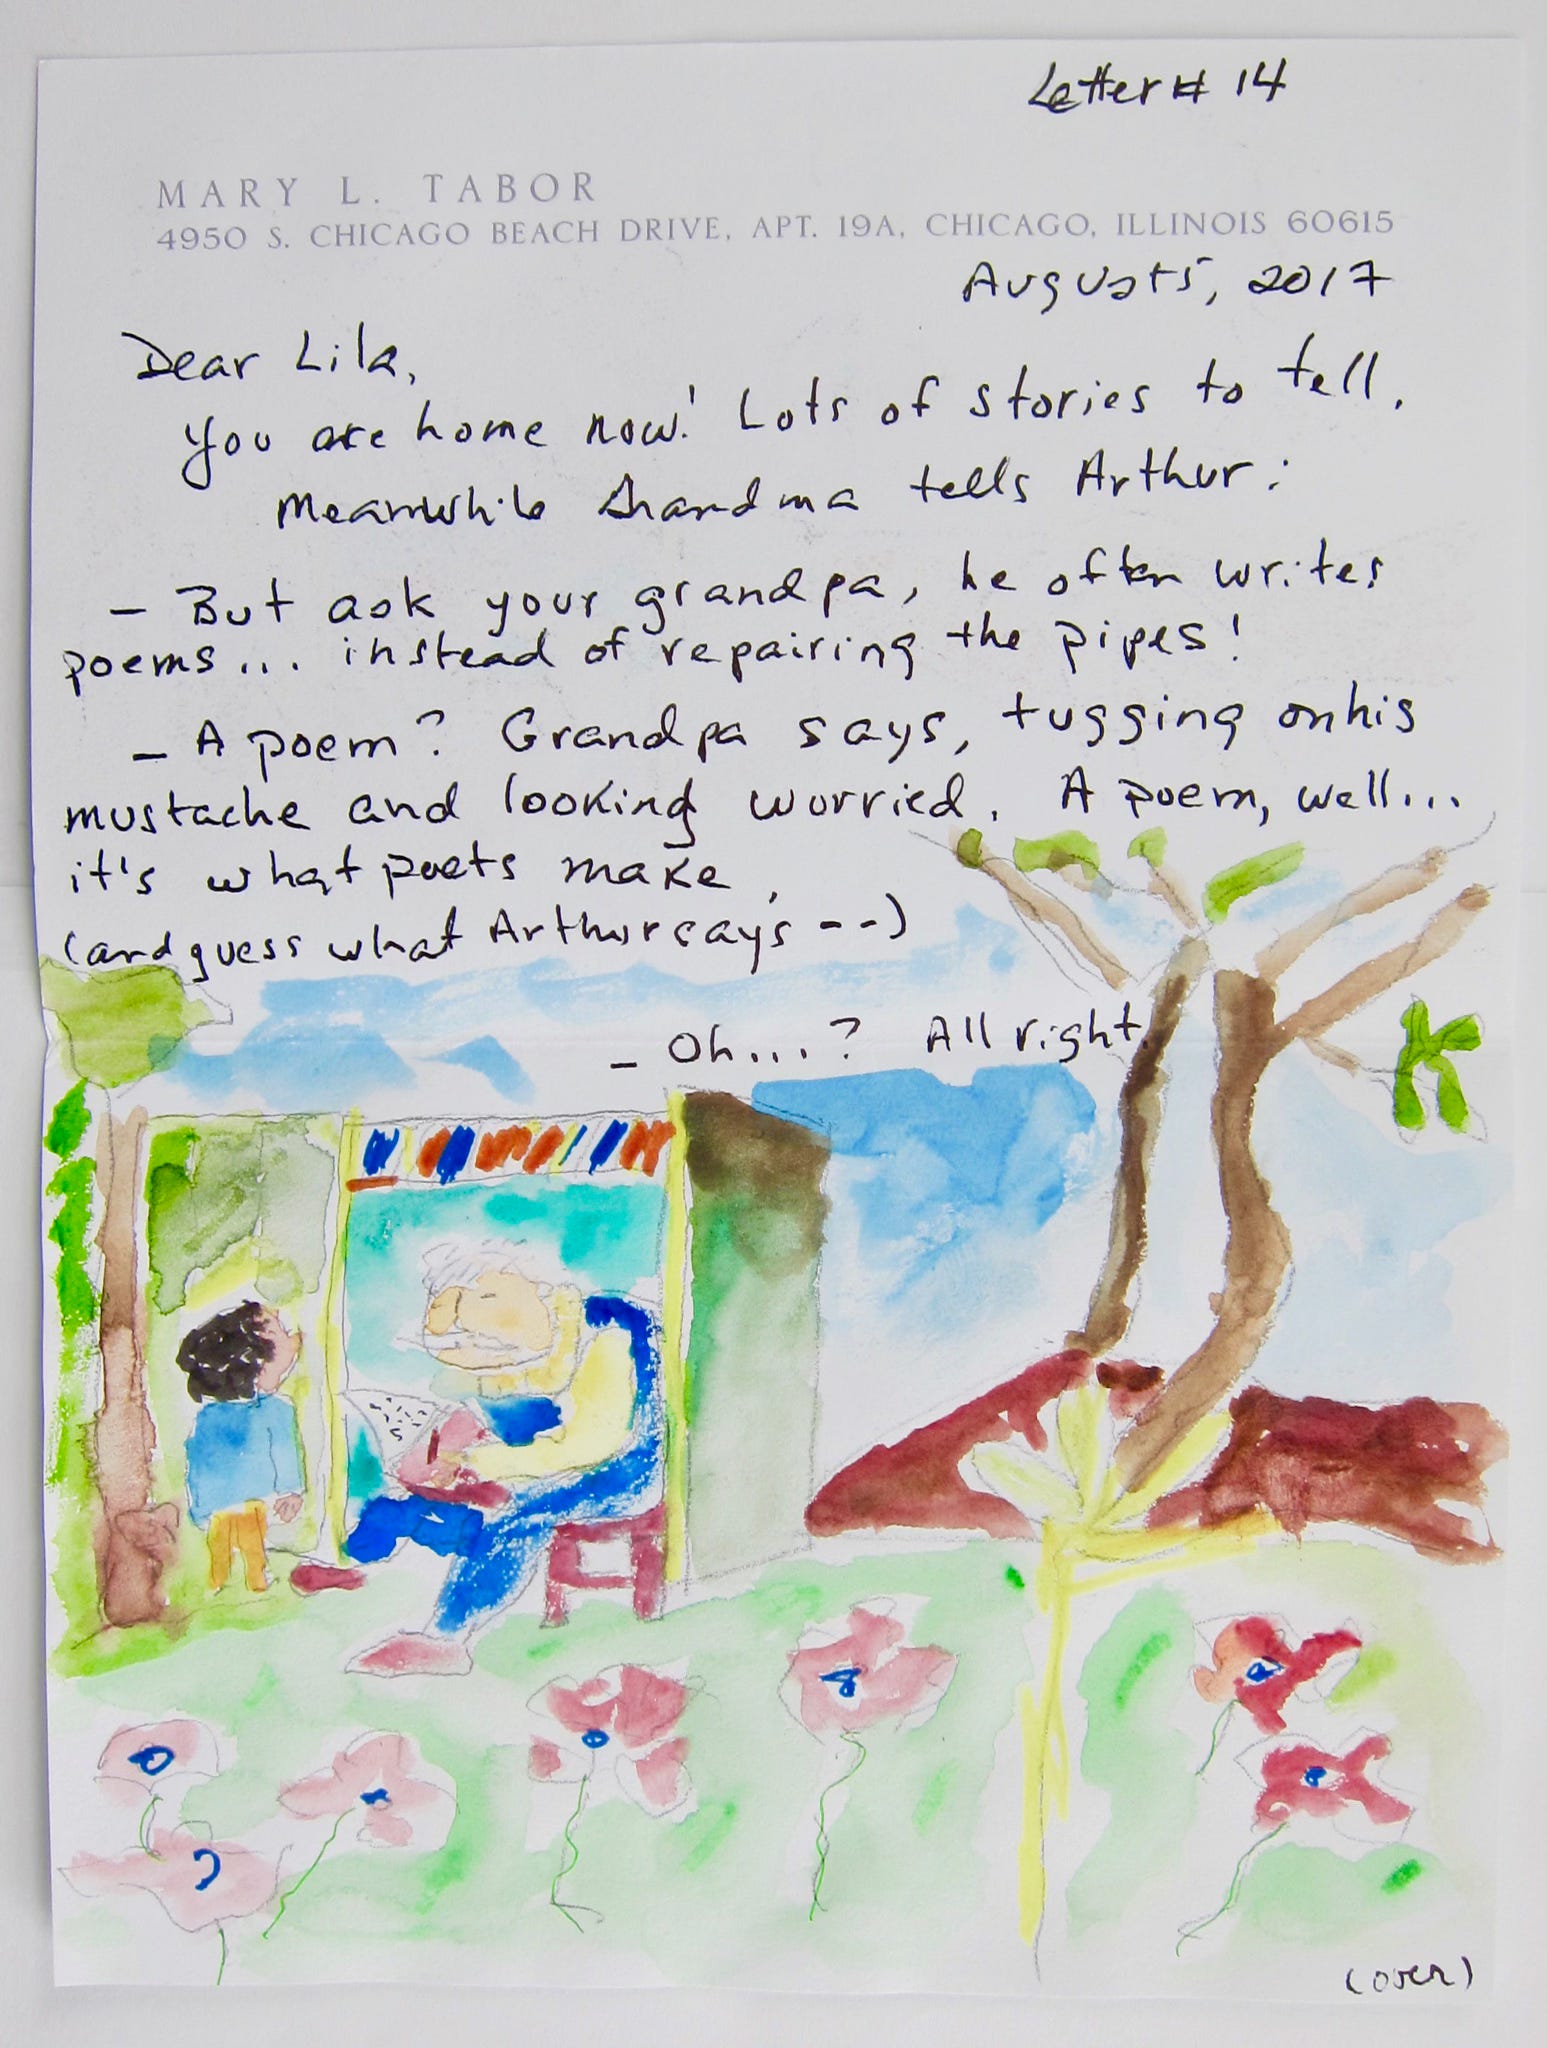 Letter # 14
MARY L. TABOR
4950 S. CHICAGO BEACH DRIVE, APT. 19A, CHICAGO, ILLINOIS 60615
August 5, 2017
Dear Lila,
You are home now! Lots of stories to tell.
Meanwhile Grandma tells Arthur:
– But ask your grandpa, he often writes
poems... instead of repairing the pipes!
– A poem? Grandpa says, tugging on his
mustache and looking worried. A poem, well...
it's what poets make.
(and guess what Arthur says --)
– Oh...? All right.
(over)